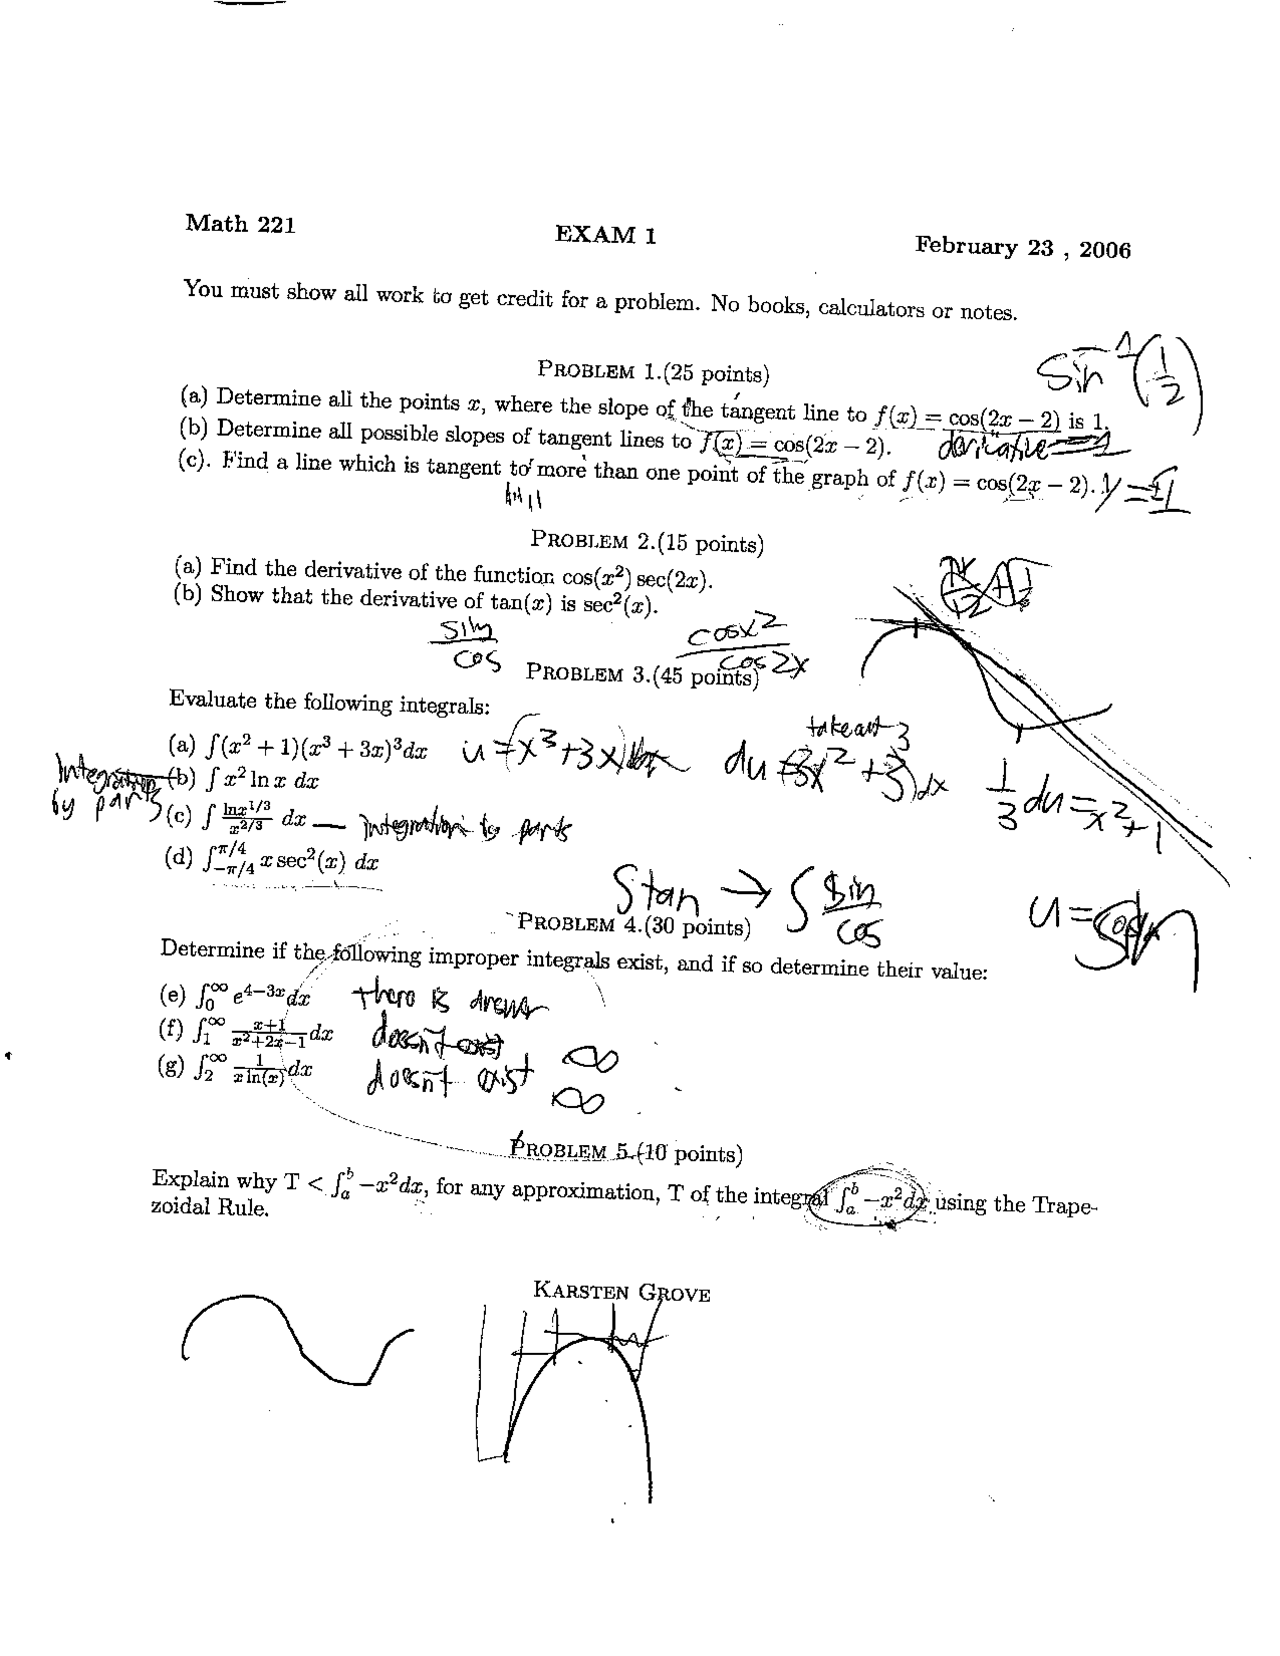 Math 221 EXAM 1 February 23 , 2006
You must show all work to get credit for a problem. No books, calculators or notes.
sin⁻¹(1/2)
PROBLEM 1.(25 points)
(a) Determine all the points x, where the slope of the tangent line to f(x) = cos(2x − 2) is 1.
(b) Determine all possible slopes of tangent lines to f(x) = cos(2x − 2). derivative = 1
(c). Find a line which is tangent to more than one point of the graph of f(x) = cos(2x − 2). y = 1
PROBLEM 2.(15 points)
(a) Find the derivative of the function cos(x²) sec(2x).
(b) Show that the derivative of tan(x) is sec²(x).
sin/cos cosx²/cos2x
PROBLEM 3.(45 points)
Evaluate the following integrals:
(a) ∫(x² + 1)(x³ + 3x)³dx u = (x³+3x) du = (3x²+3)dx take out 3 1/3 du = x²+1
Integration by parts (b) ∫ x² ln x dx
(c) ∫ lnx^{1/3}/x^{2/3} dx — integration by parts
(d) ∫_{−π/4}^{π/4} x sec²(x) dx
∫tan → ∫ sin/cos u =
PROBLEM 4.(30 points)
Determine if the following improper integrals exist, and if so determine their value:
(e) ∫_0^∞ e^{4−3x}dx there is answer
(f) ∫_1^∞ x+1/x²+2x−1 dx doesn't exist ∞
(g) ∫_2^∞ 1/x ln(x) dx doesn't exist ∞
PROBLEM 5.(10 points)
Explain why T < ∫_a^b −x²dx, for any approximation, T of the integral ∫_a^b −x²dx using the Trape-
zoidal Rule.
KARSTEN GROVE